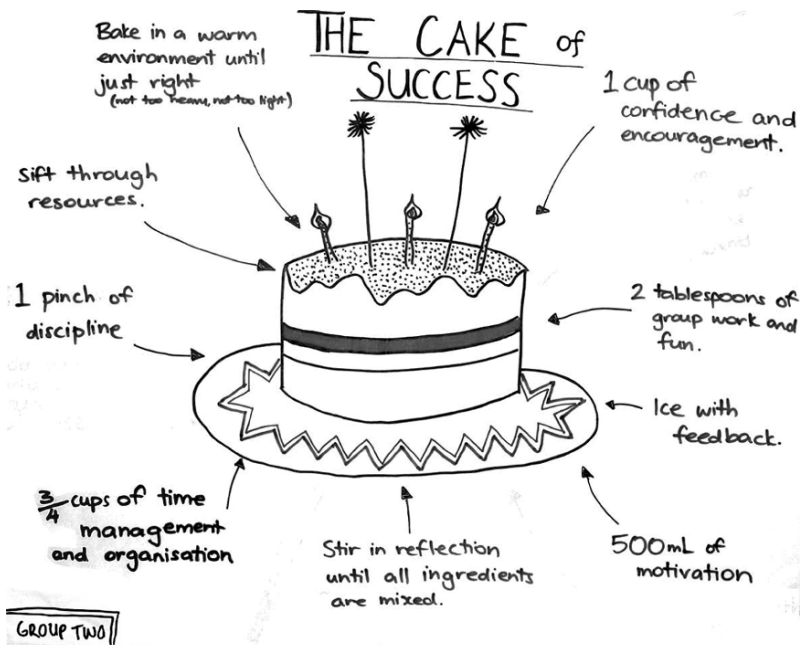 THE CAKE of
SUCCESS
Bake in a warm
environment until
just right
(not too heavy, not too light)
1 cup of
confidence and
encouragement.
Sift through
resources.
1 pinch of
discipline
2 tablespoons of
group work and
fun.
Ice with
feedback.
3/4 cups of time
management
and organisation
Stir in reflection
until all ingredients
are mixed.
500mL of
motivation
GROUP TWO